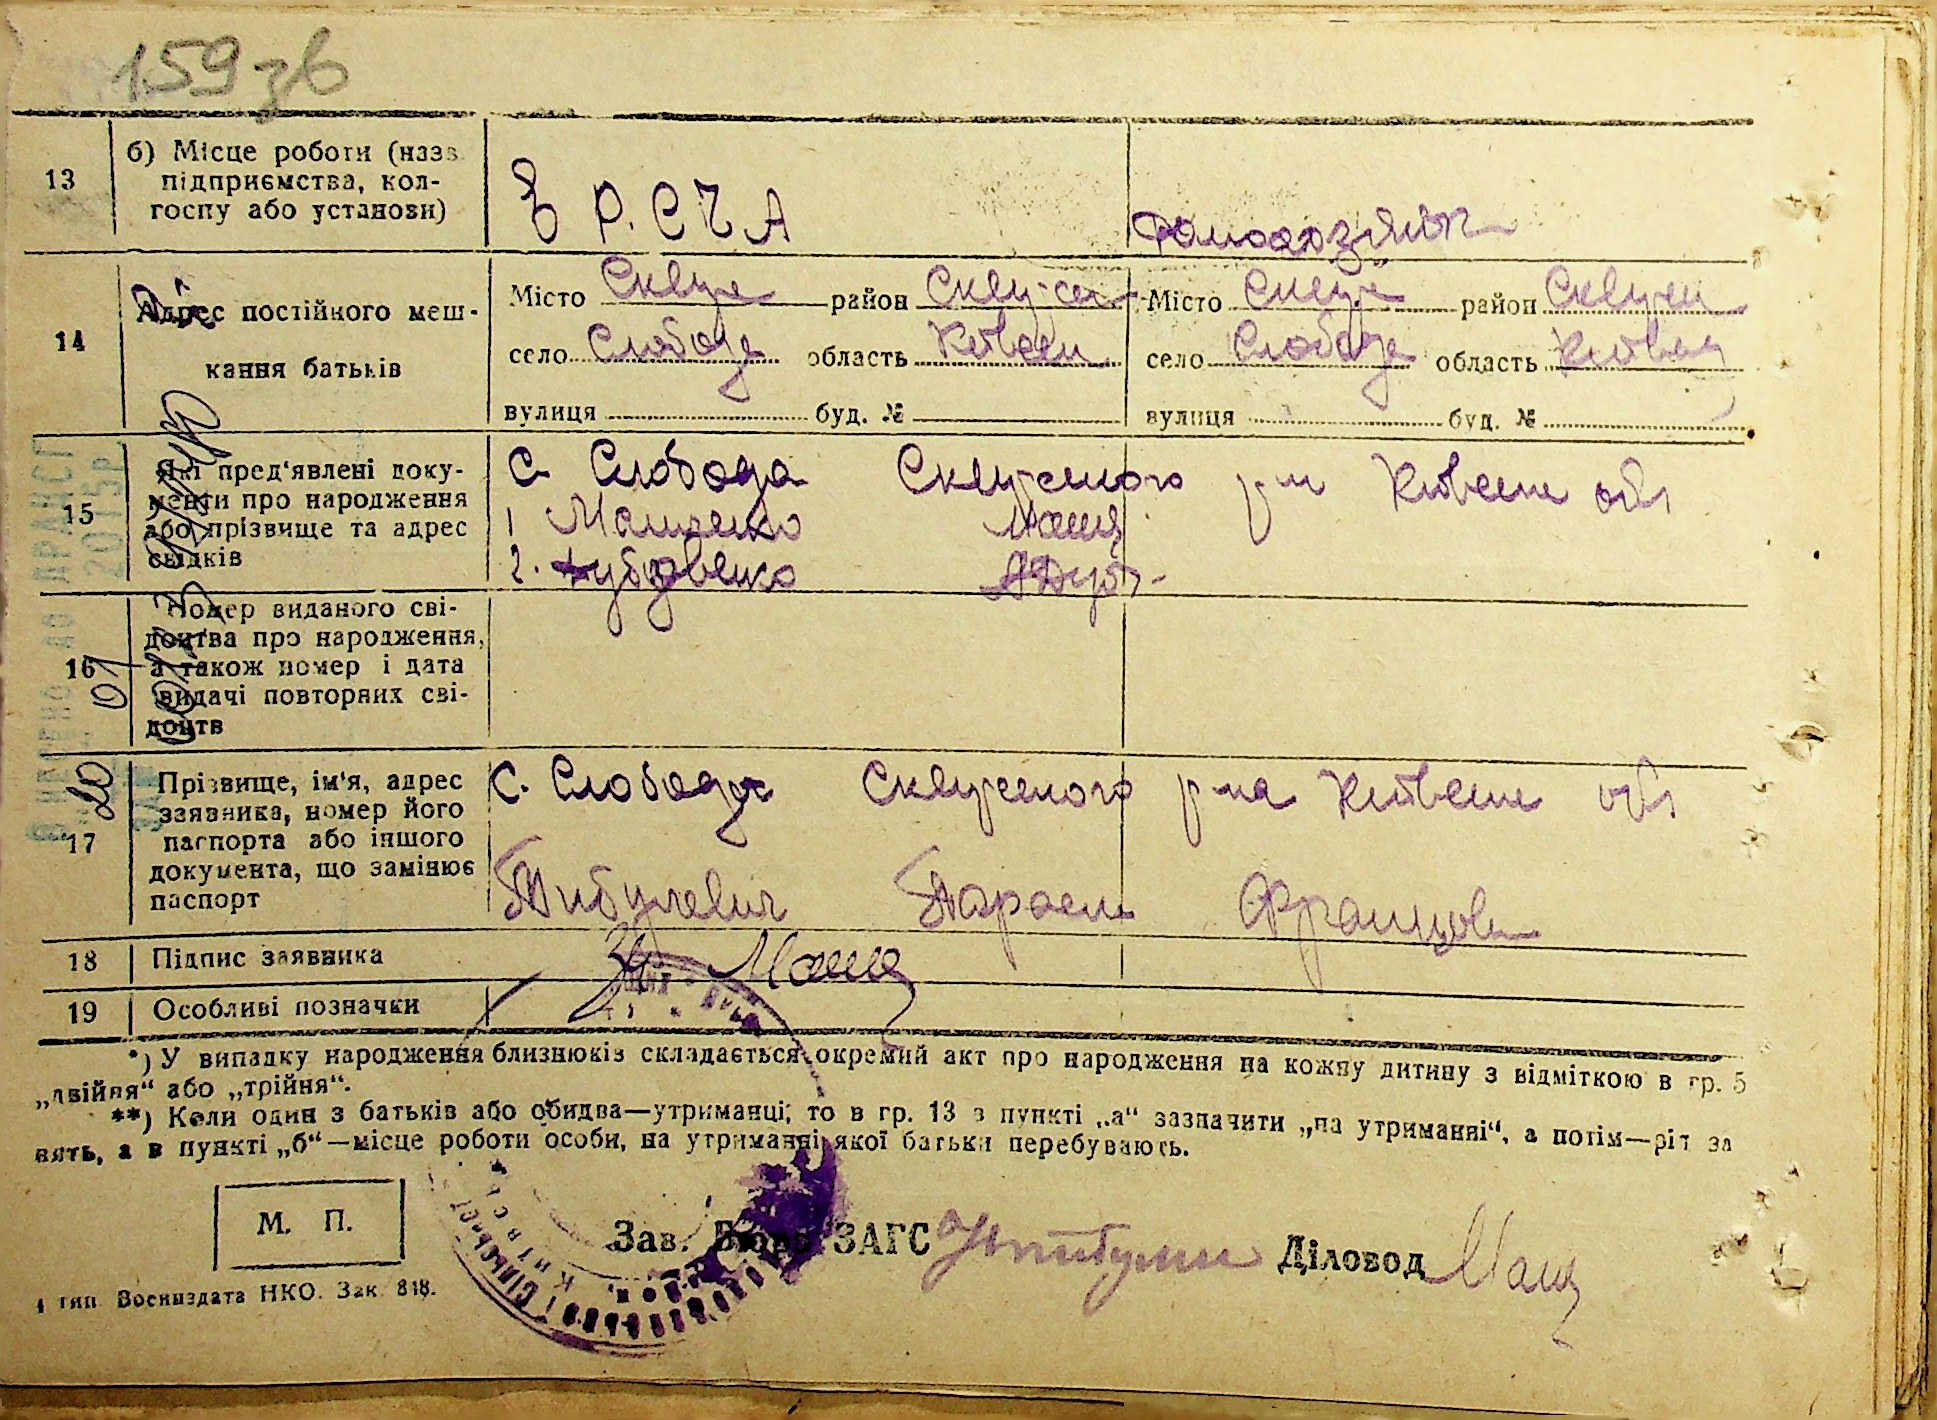 159 зв
13
б) Місце роботи (назв
підприємства, кол-
госпу або установи)
в Р.С.Ч.А
14
Адрес постійного меш-
кання батьків
Місто Сквира район Сквирськ
село Слобода область Київськ
вулиця буд. №
Місто Сквира район Сквирськ
село Слобода область Київськ
вулиця буд. №
15
Які пред'явлені доку-
менти про народження
або прізвище та адрес
свідків
с. Слобода Сквирського р-н Київськ обл
1 Мащенко Мащ
2.
16
Номер виданого сві-
доцтва про народження,
а також номер і дата
видачі повторних сві-
доцтв
17
Прізвище, ім'я, адрес
заявника, номер його
паспорта або іншого
документа, що замінює
паспорт
с. Слобода Сквирського р-на Київськ обл
18
Підпис заявника
За
19
Особливі позначки
*) У випадку народження близнюків складається окремий акт про народження на кожну дитину з відміткою в гр. 5
„двійня“ або „трійня“.
**) Коли один з батьків або обидва—утриманці; то в гр. 13 в пункті „а“ зазначити „на утриманні“, а потім—ріт за
нять, а в пункті „б“—місце роботи особи, на утриманні якої батьки перебувають.
М. П.
Зав. Бюро ЗАГС
Діловод Мащ
4 тип. Воениздата НКО. Зак. 848.